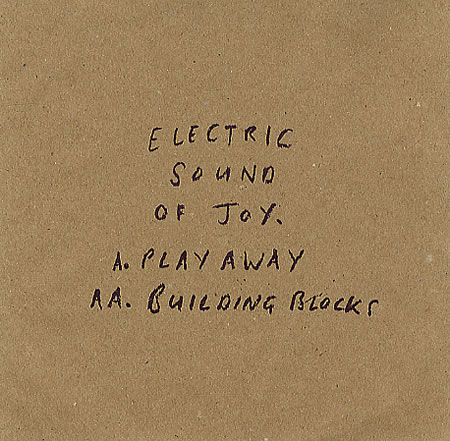 ELECTRIC
SOUND
OF JOY.
A. PLAY AWAY
AA. BUILDING BLOCKS